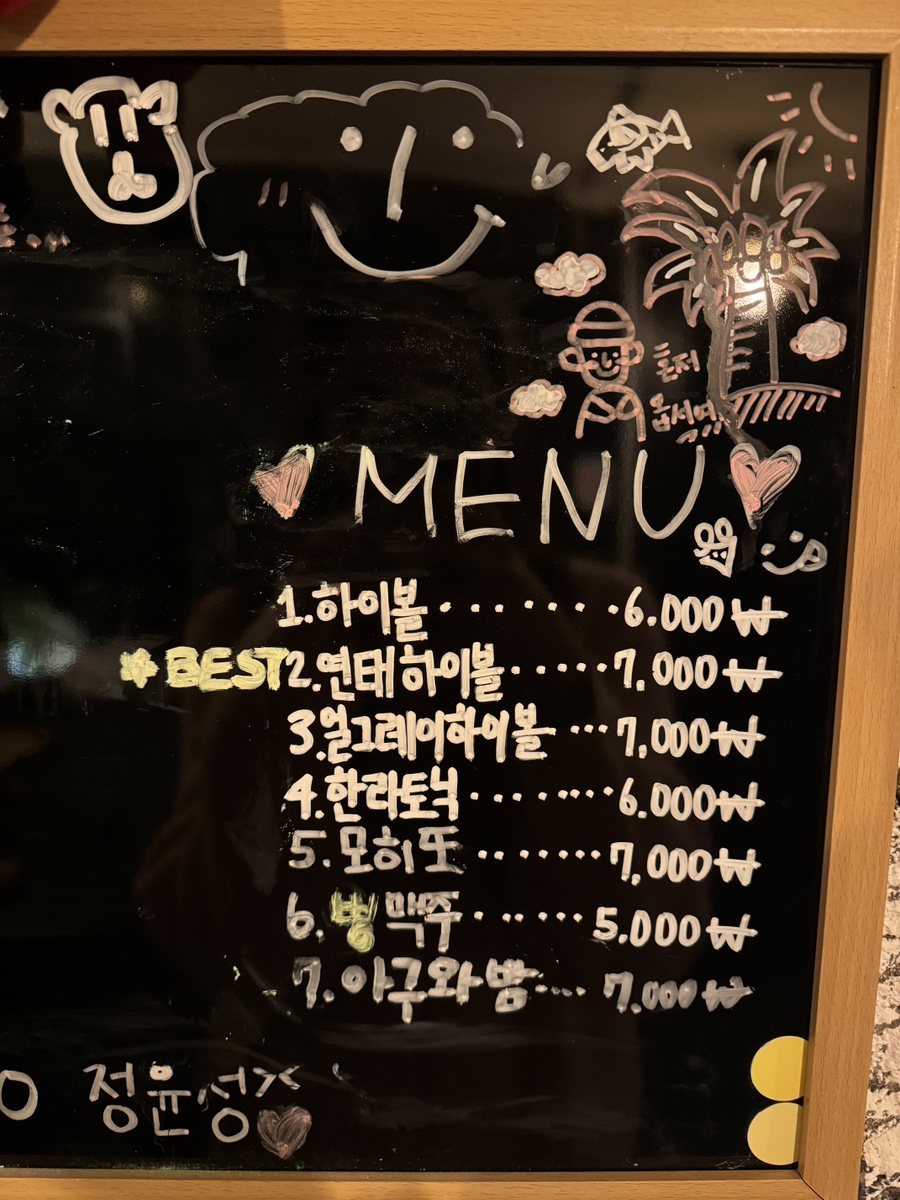 혼저
옵서예
MENU
1.하이볼........6.000₩
BEST 2.연태하이볼.....7.000₩
3.얼그레이하이볼...7,000₩
4.한라토닉.......6.000₩
5.모히또.......7,000₩
6.병맥주......5.000₩
7.아구와밤....7.000₩
정윤성